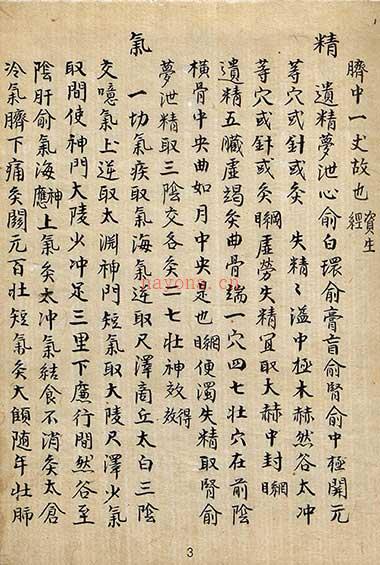 臍中一丈故也資生經
精
遺精夢泄心俞白環俞膏肓俞腎俞中極關元
等穴或針或灸 失精〻溢中極木赫然谷太冲
等穴或針或灸綱虛勞失精宜取大赫中封綱
遺精五臟虛竭灸曲骨端一穴四七壯穴在前陰
橫骨中央曲如月中央是也綱便濁失精取腎俞
夢泄精取三陰交各灸二七壯神效得效
氣
一切氣疾取氣海氣逆取尺澤商丘太白三陰
交噫氣上逆取太淵神門短氣取大陵尺澤少氣
取間使神門大陵少冲足三里下廉行間然谷至
陰肝俞氣海神應上氣灸太冲氣結食不消灸太倉
冷氣臍下痛灸關元百壯短氣灸大顀随年壯肺
3
nayona.cn